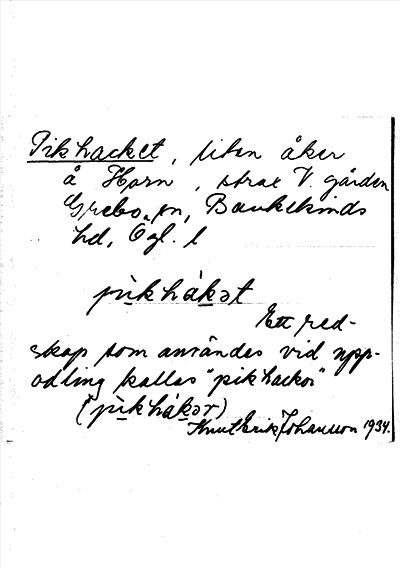 Pikhacket, liten åker
å Horn, strax V. gården
Grebo sn, Bankekinds
hd, Ögl.
pìkhákət
Ett red-
skap som användes vid upp-
odling kallas "pikhackor"
(pìkhákər)
Knut Erik Johansson 1934.